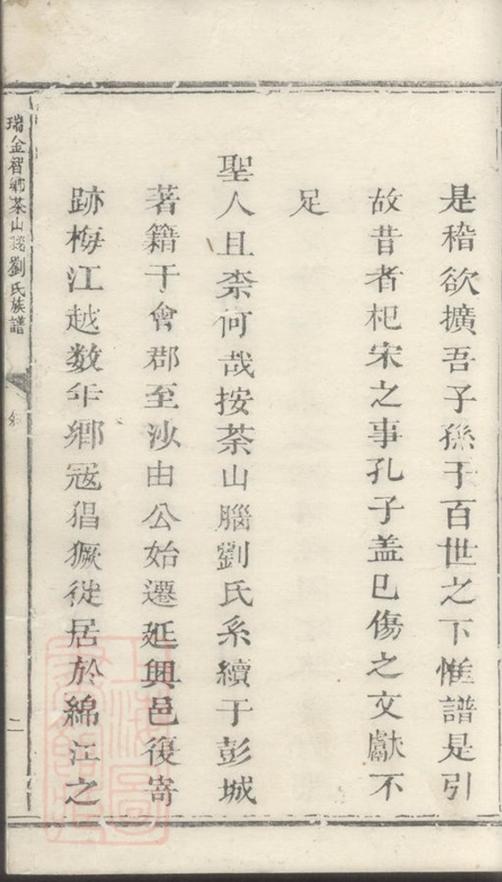 是稽欲擴吾子孫于百世之下惟譜是引
故昔者杞宋之事孔子盖已傷之文獻不
足
聖人且柰何哉按茶山腦劉氏系續于彭城
著籍于會郡至沙由公始遷延興邑復寄
跡梅江越数年鄉冦猖獗徙居於綿江之
瑞金智鄉茶山劉氏族譜
二